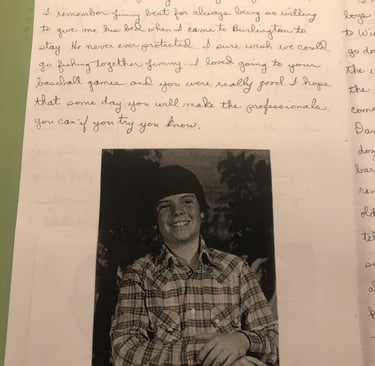 I remember Jimmy best for always being so willing
to give me his bed when I came to Burlington to
stay. He never ever protested. I sure wish we could
go fishing together Jimmy. I loved going to your
baseball games and you were really good. I hope
that some day you will make the professionals.
You can if you try you know.
boys
to Wi
go do
the
the
come
Da
don
bas
old
tel